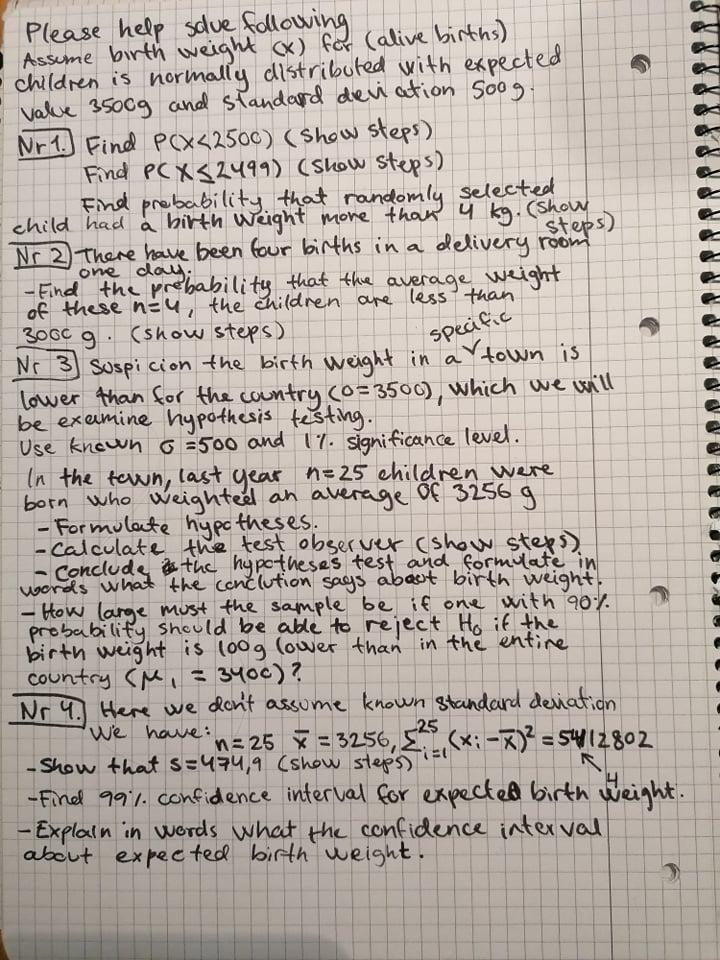 Please help solve following
Assume birth weight (x) for (alive births)
children is normally distributed with expected
value 3500g and standard deviation 500g.
Nr 1. Find P(X<2500) (show steps)
Find P(X≤2499) (show steps)
Find probability that randomly selected
child had a birth weight more than 4 kg. (show steps)
Nr 2 There have been four births in a delivery room
one day.
- Find the probability that the average weight
of these n=4, the children are less than
3000 g. (show steps)
Nr 3 Suspicion the birth weight in a specific town is
lower than for the country (0=3500), which we will
be examine hypothesis testing.
Use known σ=500 and 1% significance level.
In the town, last year n=25 children were
born who weighted an average of 3256 g
- Formulate hypotheses.
- Calculate the test observer (show steps)
- Conclude the hypotheses test and formulate in
words what the conclution says about birth weight.
- How large must the sample be if one with 90%
probability should be able to reject H₀ if the
birth weight is 100g lower than in the entire
country (μ₁ = 3400)?
Nr 4. Here we don't assume known standard deviation
We have: n=25 x̄=3256, Σ²⁵ᵢ₌₁ (xᵢ-x̄)² = 5412802
4
- Show that s=474,9 (show steps)
- Find 99% confidence interval for expected birth weight.
- Explain in words what the confidence interval
about expected birth weight.